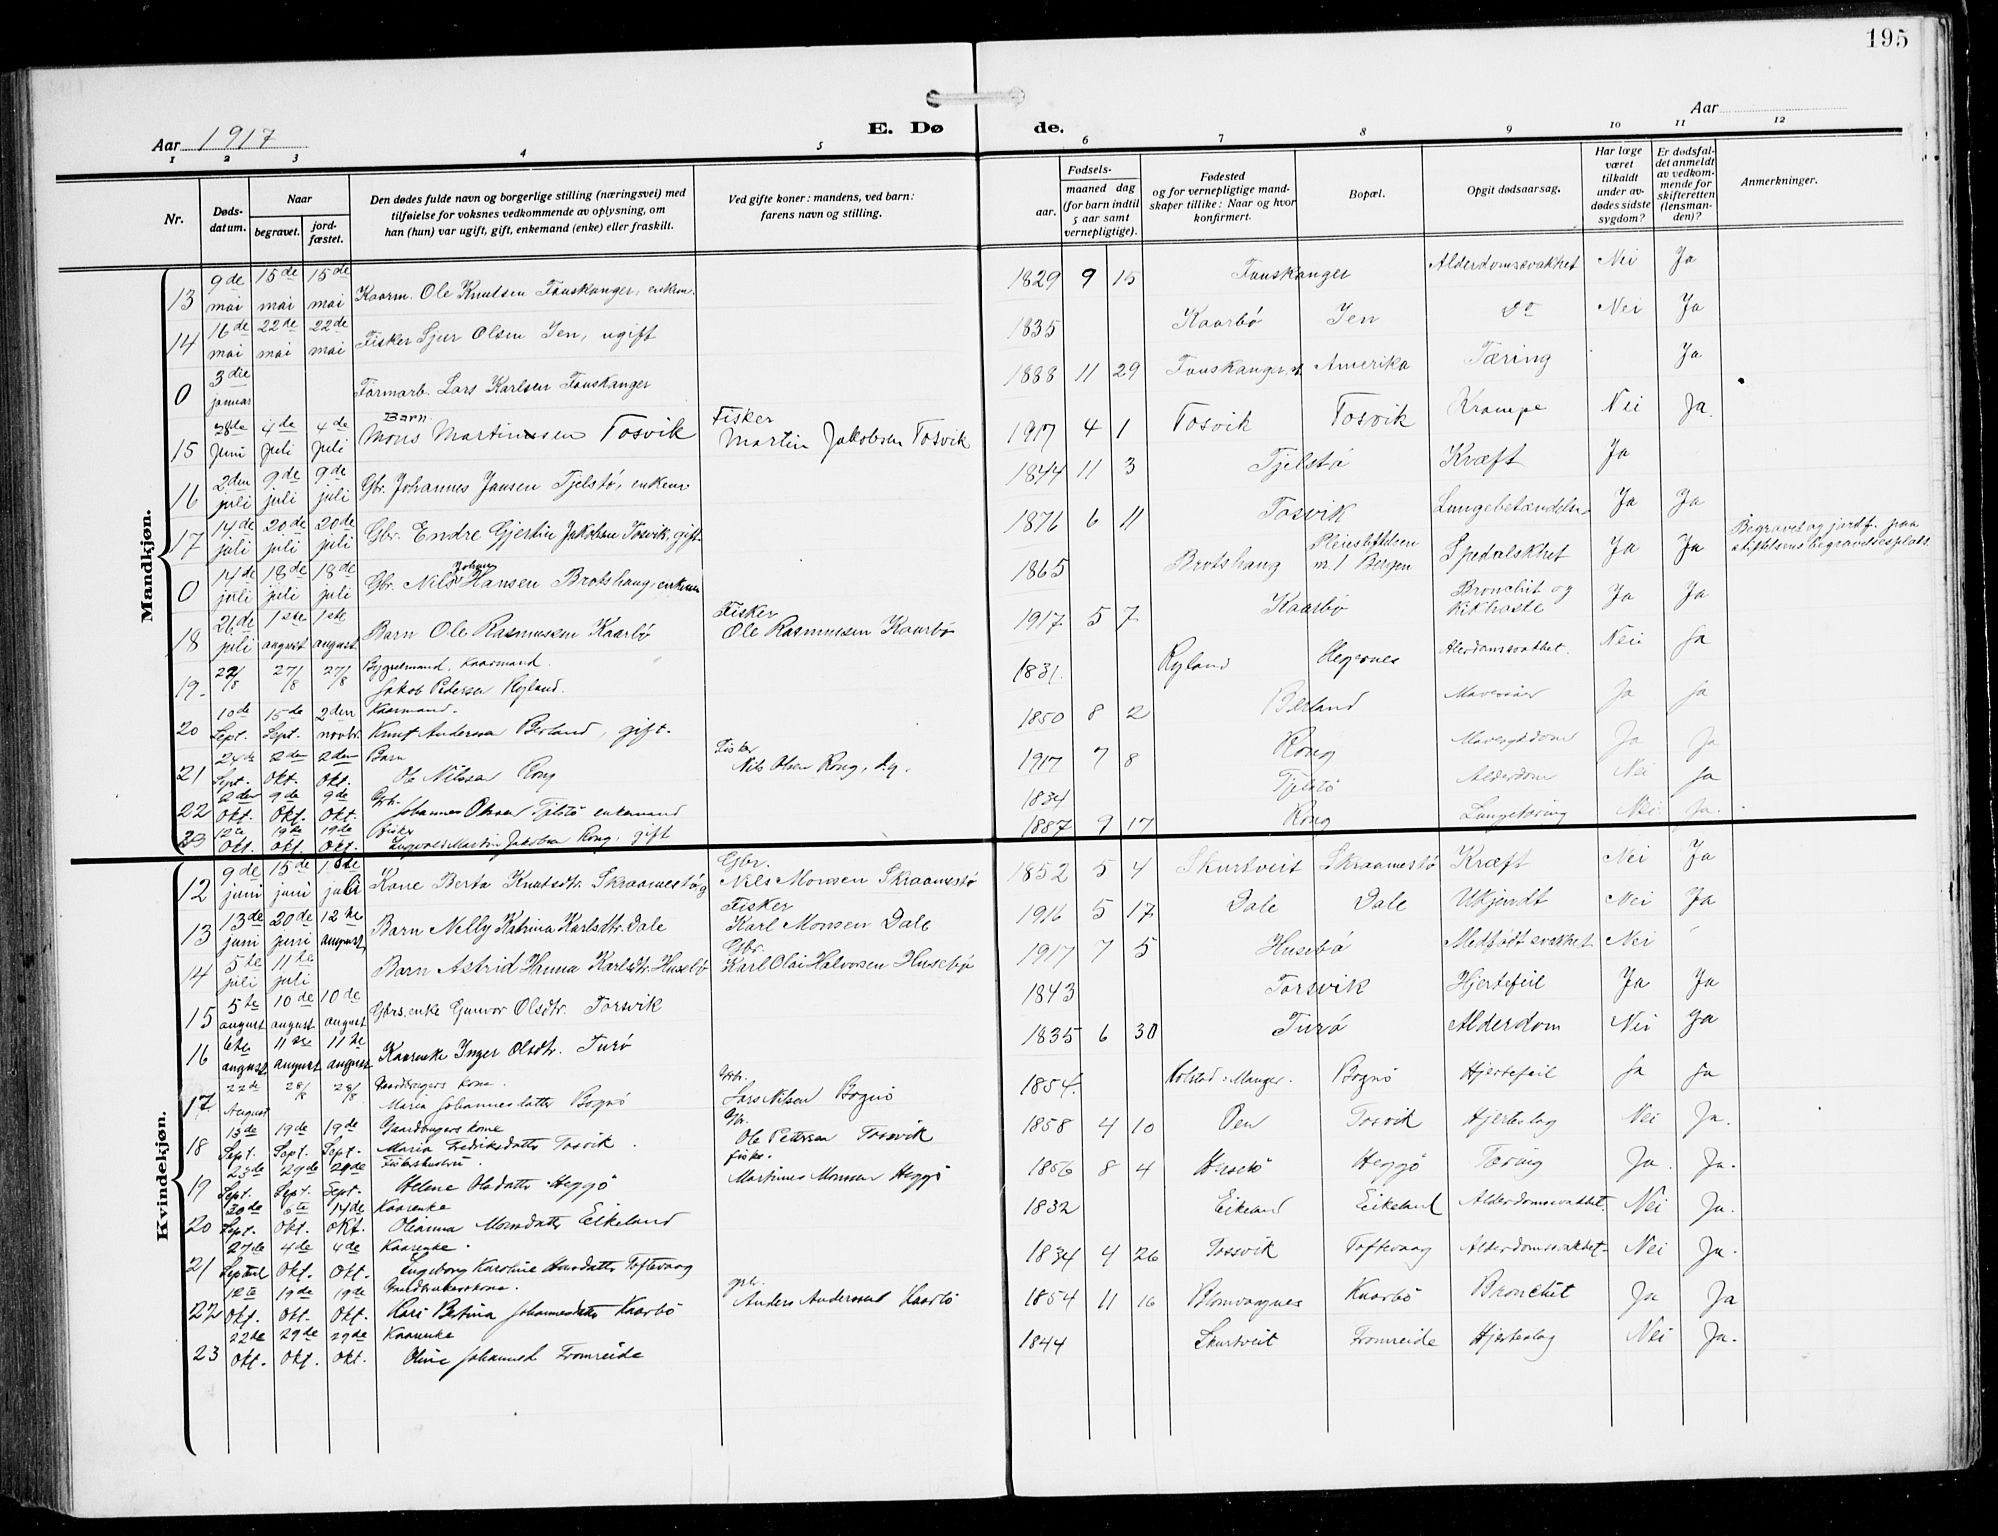 195
Aar 1917
E. Dø
de.
Aar
1 2 3 4 5 6 7 8 9 10 11 12
Nr.
Døds-
datum.
Naar
begravet.
jord-
fæstet.
Den dødes fulde navn og borgerlige stilling (næringsvei) med
tilføielse for voksnes vedkommende av oplysning, om
han (hun) var ugift, gift, enkemand (enke) eller fraskilt.
Ved gifte koner: mandens, ved barn:
farens navn og stilling.
Fødsels-
aar.
maaned dag
(for barn indtil
5 aar samt
vernepligtige).
Fødested
og for vernepligtige mand-
skaper tillike: Naar og hvor
konfirmert.
Bopæl.
Opgit dødsaarsag.
Har læge
været
tilkaldt
under av-
dødes sidste
sygdom?
Er dødsfal-
det anmeldt
av vedkom-
mende for
skifteretten
(lensman-
den)?
Anmerkninger.
Mandkjøn.
13 9de mai 15de mai 15de mai Kaarm. Ole Knutsen Fauskanger, enkem. 1829 9 15 Fauskanger Alderdomssvakhet Nei Ja
14 16de mai 22de mai 22de mai Fisker Sjur Olsen Jen, ugift 1835 Kaarbø Jen do Nei Ja
0 3die januar Farmarb. Lars Karlsen Fauskanger 1888 11 29 Fauskanger Amerika Tæring Ja
15 28de Juni 4de Juli 4de Juli Barn Mons Martinussen Tosvik Fisker Martin Jakobsen Tosvik 1917 4 1 Tosvik Tosvik Krampe Nei Ja.
16 2den juli 9de juli 9de juli Gbr. Johannes Jansen Tjelstø, enkem 1844 11 3 Tjelstø Kræft Ja
17 14de juli 20de juli 20de juli Gbr. Endre Gjertin Jakobsen Tosvik, gift 1876 6 11 Tosvik Lungebetændelse Ja Ja
0 14de juli 18de juli 18de juli Gbr. Nils Johan Hansen Brotshaug, enkem 1865 Brotshaug Pleiestiftelsen nr. 1 Bergen Spedalskhet Ja Ja Begravet og jordf. paa stiftelsens begravelsesplads
18 26de juli 1ste august 1ste august Barn Ole Rasmussen Kaarbø Fisker Ole Rasmussen Kaarbø 1917 5 7 Kaarbø Bronchit og kikhoste Ja Ja
19. 22/8 27/8 27/8 Kaarmand. Jakob Pedersen Ryland. 1831. Ryland Hegernes Alderdomssvakhet. Nei Ja
20 10de Sept. 15de Sept. 2den novbr. Kaarmand. Knut Andersen Berland, gift. 1850 8 2 Berland Ja Ja
21 24de Sept. 2den Okt. 2den Okt. Barn Ole Nilssen Rong Fisker Nils Olsen Rong, d.y. 1917 7 8 Rong Mavesygdom Ja Ja
22 2den Okt. 9de Okt. 9de Okt. Gbr. Johannes Olsen Tjelstø enkemand 1834 Tjelstø Alderdom Nei Ja
23 12te Okt. 19de Okt. 19de Okt. Fisker Ingvald Martin Jakobsen Rong, gift 1887 9 17 Rong Lungetæring Nei Ja.
Kvindekjøn.
12 9de juni 15de juni juli Kone Berta Knutsdtr. Skraamestø Gbr. Nils Monsen Skraamestø 1852 5 4 Skurtveit Skraamestø Kræft Nei Ja
13 13de juni 20de juni 12te august Barn Nelly Katrina Karlsdtr. Dale Fisker Karl Monsen Dale 1916 5 17 Dale Dale Ukjendt Nei Ja
14 5te juli 11te juli Barn Astrid Hanna Karlsdtr. Husebø Gbr. Karl Olai Halvorsen Husebø 1917 7 5 Husebø Medfødt svakhet Nei
15 5te august 10de august 10de august Gbrs. enke Gunvor Olsdtr. Torsvik 1843 Torsvik Hjertefeil Ja Ja
16 6te august 11te august 11te august Kaarenke Inger Olsdtr. Turø 1835 6 30 Turø Alderdom Nei Ja
17 22de August 28/8 28/8 Gaardbrugers kone. Maria Johannesdatter Bognø Gbr. Lars Nilsen Bognø 1854. Kolstad i Manger. Bognø Hjertefeil Ja Ja
18 13de Sept. 19de Sept. 19de Sept. Gaardbrugers kone Maria Fredriksdatter Tosvik. Gbr. Ole Petersen Tossvik 1858 4 10 Oen Tosvik Hjerteslag Nei Ja.
19 23de Sept. 29de Sept. 29de Sept. Fiskerhustru. Helene Olsdatter Heggø fisker Martinus Monsen Heggø 1856 8 4 Heggø Tæring Ja. Ja.
20 30de Sept. 6te Okt. 14de Okt. Kaarenke Olianna Monsdatter Eikeland 1832 Eikeland Eikeland Alderdomssvakhet. Nei Ja.
21 27de Septbr. 4de Okt. 4de Okt. Kaarenke. Ingeborg Karoline Hansdatter Toftevaag 1834 4 26 Tossvik Toftevaag Alderdomssvakhet. Nei Ja.
22 12te Okt. 19de Okt. 19de Okt. Gardbrukerskone. Kari Betina Johannesdatter Kaarbø gbr. Anders Andersen Kaarbø 1854 11 16 Blomvaagnes Kaarbø Bronchit Ja Ja
23 22de Okt. 29de Okt. 29de Okt. Kaarenke Oline Johannesd Fromreide 1844 Skurtveit Fromreide Hjerteslag Nei Ja.